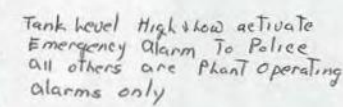 Tank Level High & Low activate
Emergency alarm To Police
all others are Phant Operating
alarms only